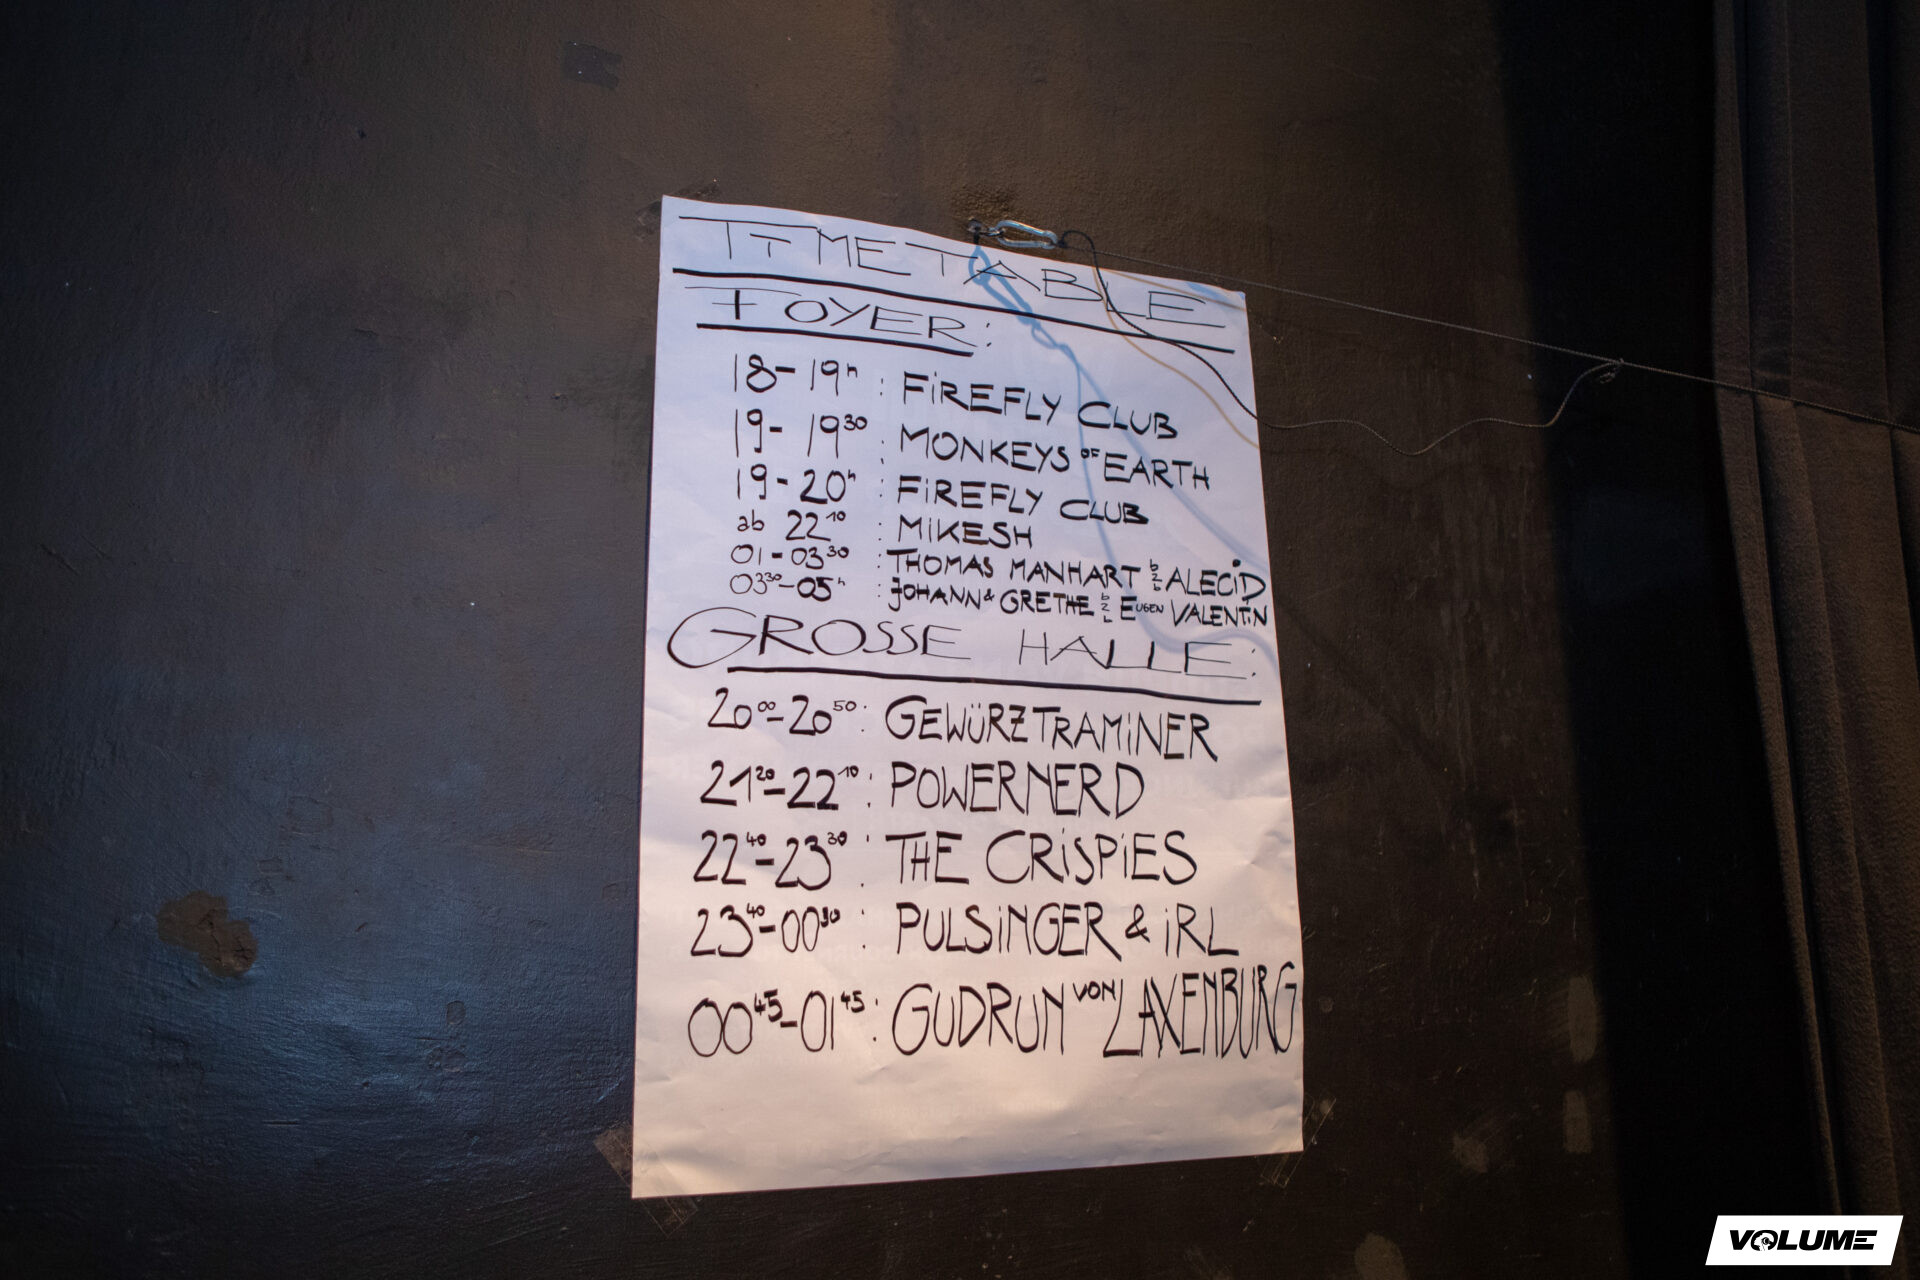 TIMETABLE
FOYER:
18-19h : FIREFLY CLUB
19-19 30 : MONKEYS OF EARTH
19-20h : FIREFLY CLUB
ab 22 10 : MIKESH
01-03 30 : THOMAS MANHART b2b ALECID
03 30-05h : JOHANN & GRETHE b2b EUGEN VALENTIN
GROSSE HALLE:
20 00-20 50 : GEWÜRZTRAMINER
21 20-22 10 : POWERNERD
22 40-23 30 : THE CRISPIES
23 40-00 30 : PULSINGER & IRL
00 45-01 45 : GUDRUN VON LAXENBURG
VOLUME